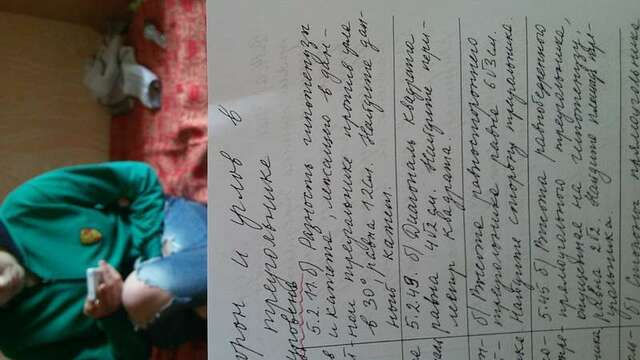 орон и углов в
треугольнике
уровень
5.2.11.б) Разность гипотенузы
и катета, лежащего в дан-
ном треугольнике против угла
в 30°, равна 12см. Найдите дан-
ный катет.
5.2.49. б) Диагональ квадрата
равна 4√2см. Найдите пери-
метр квадрата.
б) Высота равностороннего
треугольника равна 6√3см.
Найдите сторону треугольника.
5.45. б) Высота равнобедренного
прямоугольного треугольника,
опущенная на гипотенузу,
равна 2√2. Найдите площадь тре-
угольника.
б) Стороны прямоугольника